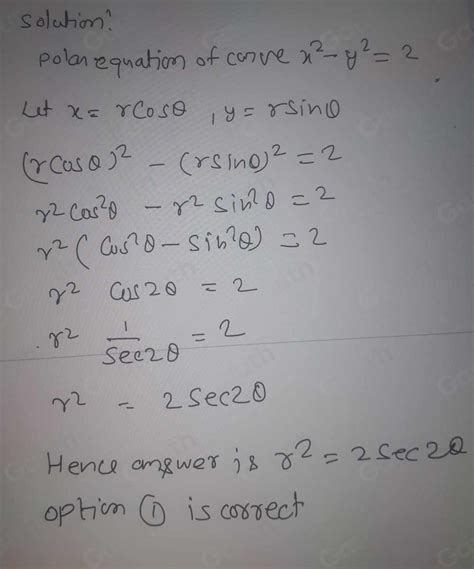 Solution:
Polar equation of curve x² - y² = 2
Let x = rCosθ , y = rsinθ
(rCosθ)² - (rsinθ)² = 2
r² Cos²θ - r² Sin²θ = 2
r² (Cos²θ - Sin²θ) = 2
r² Cos2θ = 2
r² 1/Sec2θ = 2
r² = 2Sec2θ
Hence answer is r² = 2Sec2θ
option ① is correct